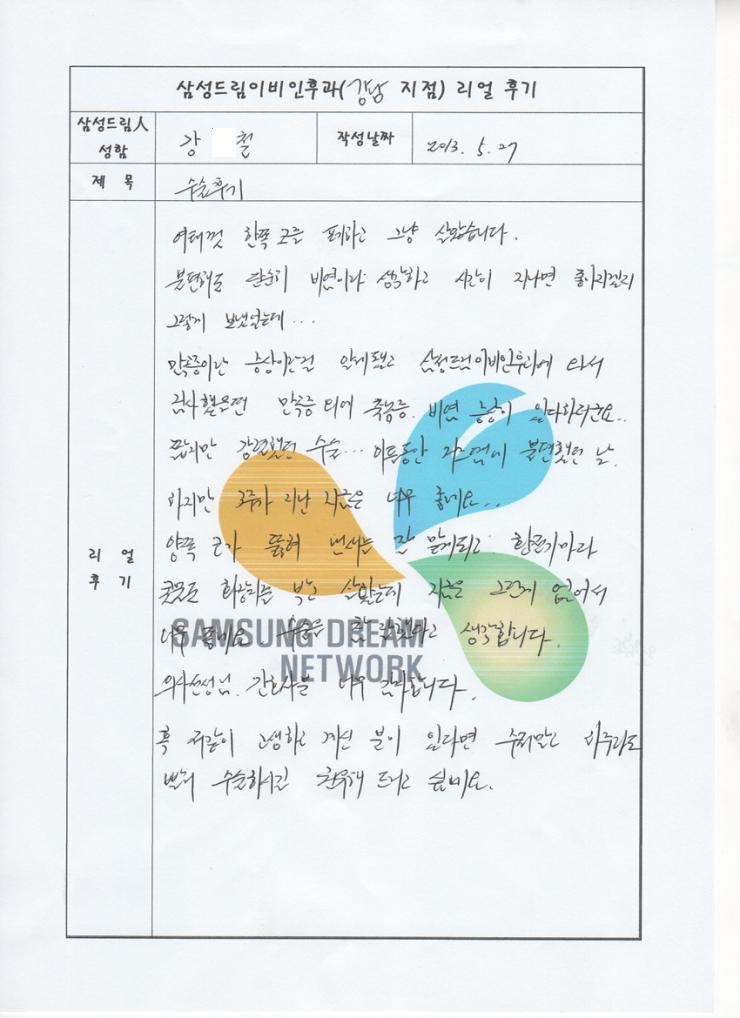 삼성드림이비인후과(강남 지점) 리얼 후기
삼성드림人 성함
강 철
작성날짜
2013. 5. 27
제 목
수술후기
리 얼 후 기
여태껏 한쪽 코를 포기하고 그냥 살았습니다.
불편해도 단순히 비염이라 생각하고 시간이 지나면 좋아지겠지
그렇게 보냈었는데...
만곡증이란 증상이란걸 알게됐고 삼성드림이비인후과에 와서
검사했을땐 만곡증 외에 축농증. 비염 증상이 있다하더군요..
짧지만 강렬했던 수술... 이틀동안 불편했던 날.
하지만 3주가 지난 지금은 너무 좋네요...
양쪽 코가 뚫혀 냄새는 잘 맡게되고. 환절기마다
콧물로 화장지를 살았는데 지금은 그런게 없어서
너무 좋네요 수술을 참 잘했다고 생각합니다.
의사선생님. 간호사들 너무 감사합니다.
혹 저같이 고생하고 계신 분이 있다면 주저말고 하루라도
빨리 수술하시길 권유해 드리고 싶네요.
SAMSUNG DREAM
NETWORK